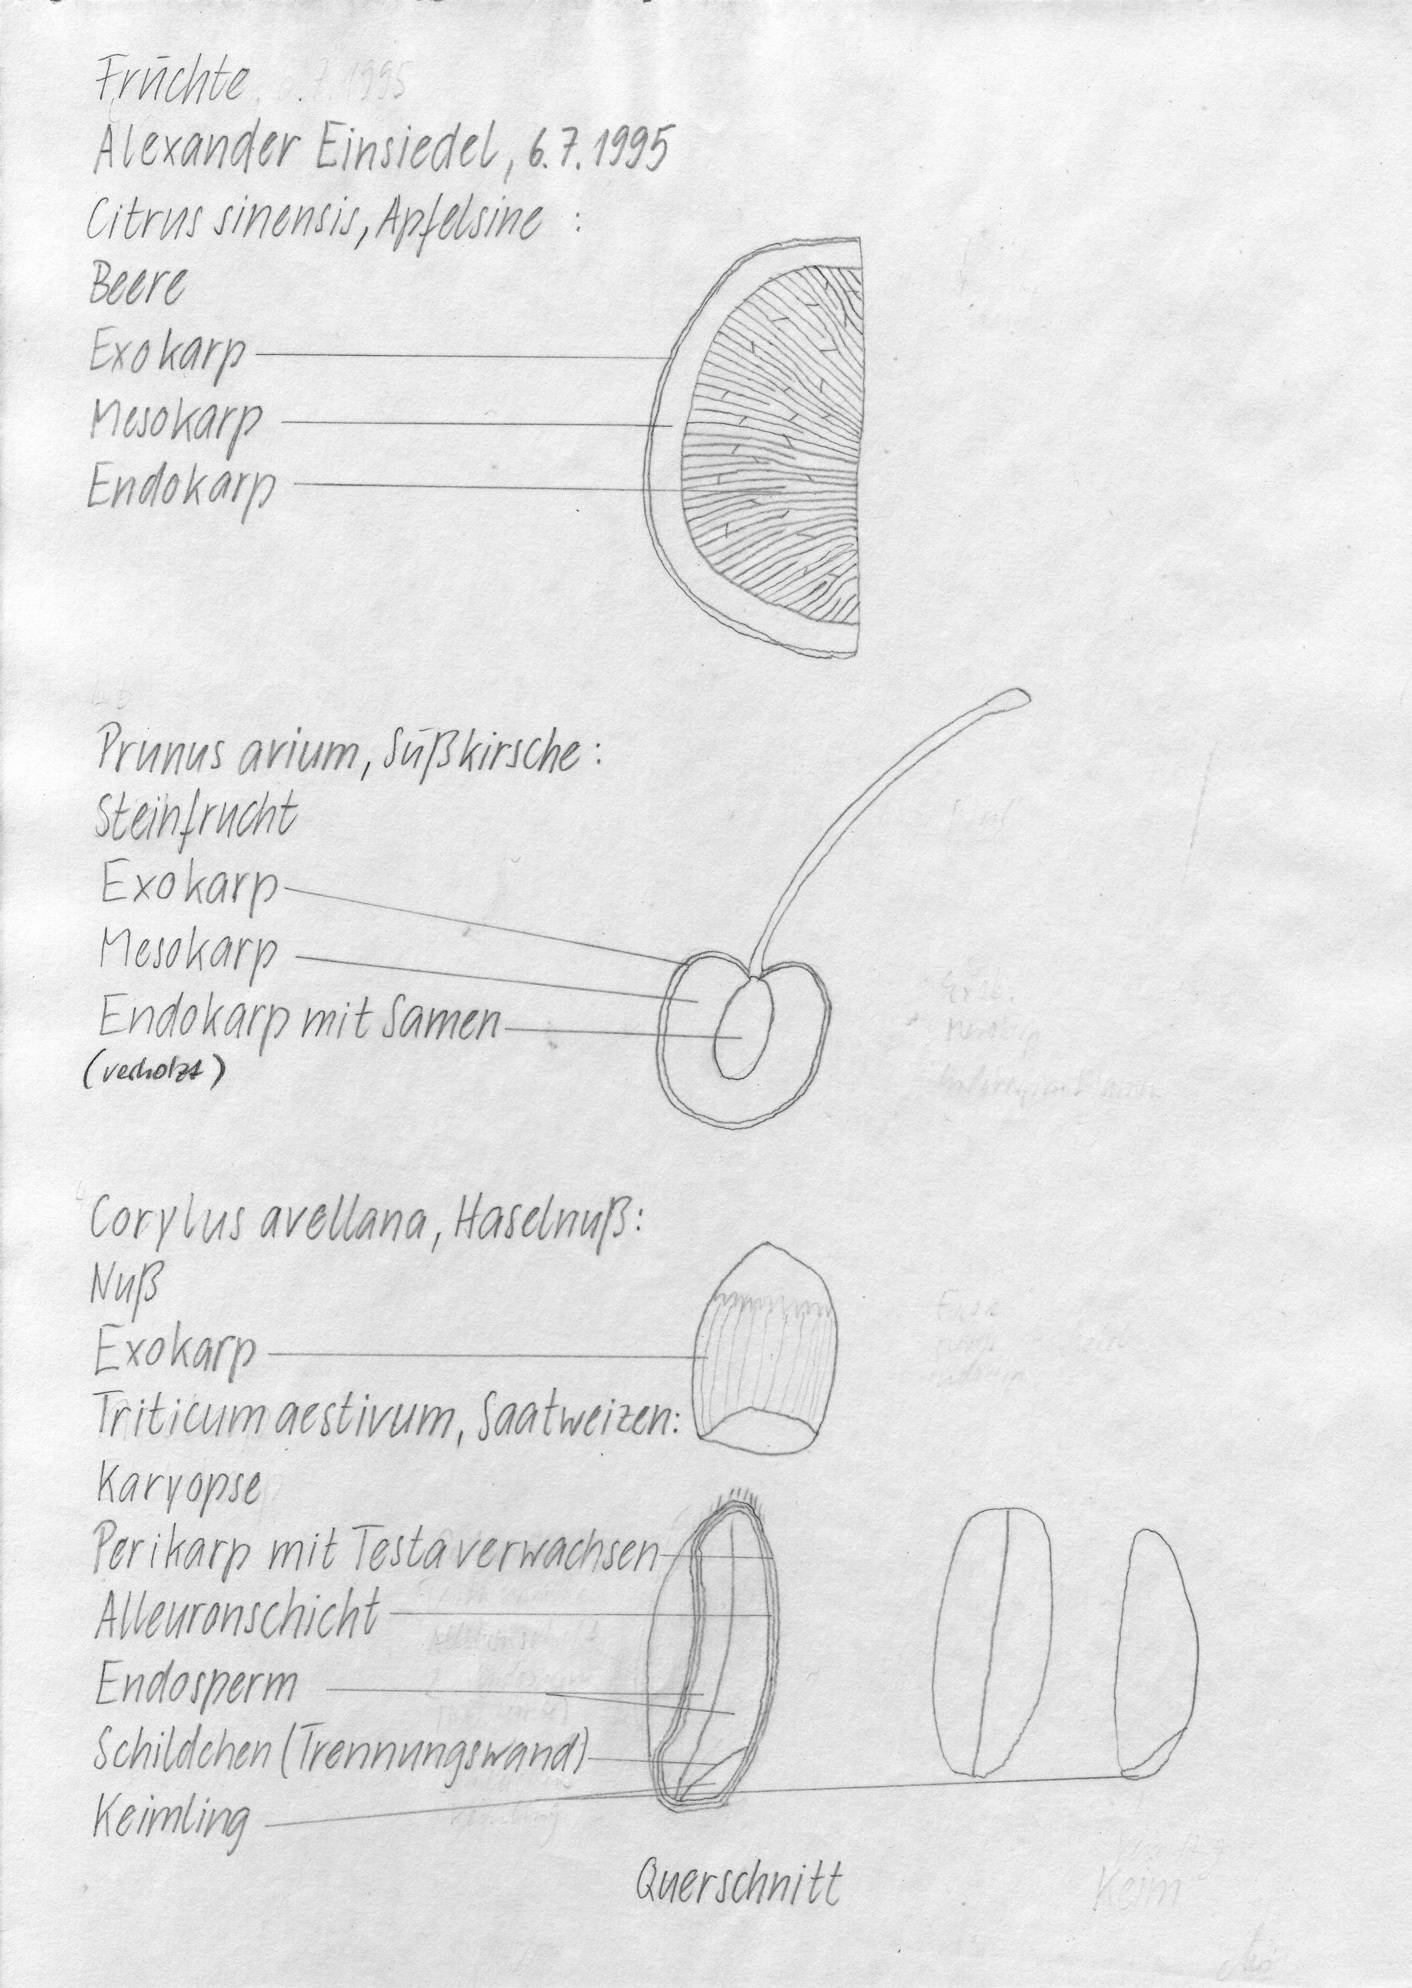 Früchte
Alexander Einsiedel, 6.7.1995
Citrus sinensis, Apfelsine :
Beere
Exokarp
Mesokarp
Endokarp
Prunus avium, Süßkirsche :
Steinfrucht
Exokarp
Mesokarp
Endokarp mit Samen
(verholzt)
Corylus avellana, Haselnuß:
Nuß
Exokarp
Triticum aestivum, Saatweizen:
Karyopse
Perikarp mit Testa verwachsen
Alleuronschicht
Endosperm
Schildchen (Trennungswand)
Keimling
Querschnitt
Keim